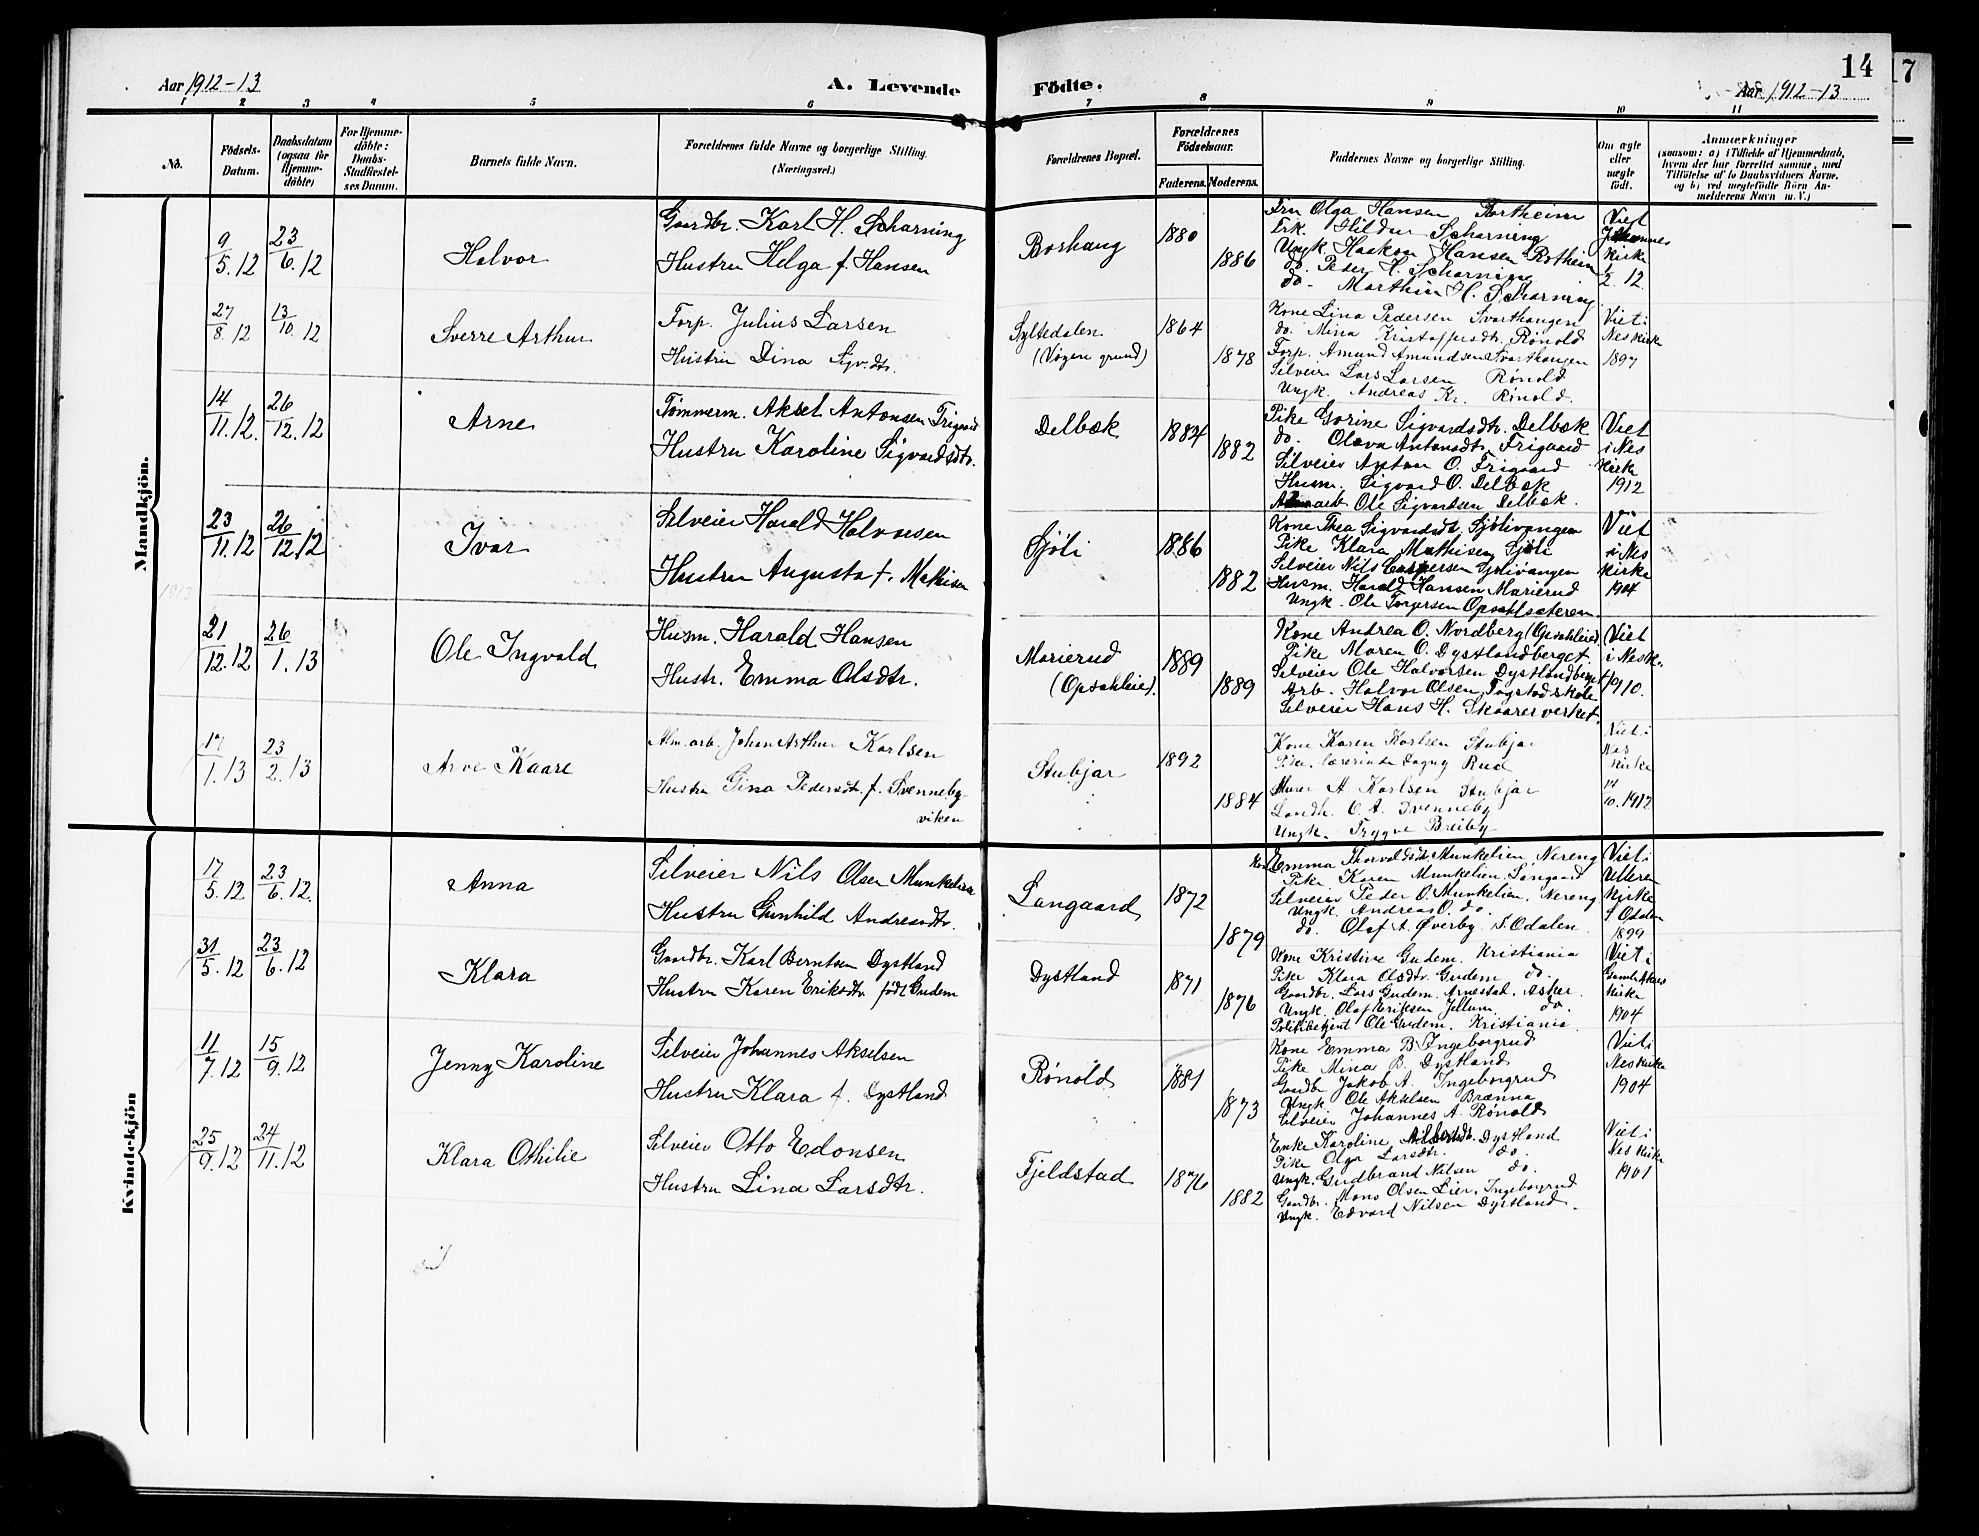 Aar 1912-13
A. Levende
Födte.
14
17
Aar 1912-13
1 2 3 4 5 6 7 8 9 10 11
No.
Födsels-
Datum.
Daabsdatum
(ogsaa for
Hjemme-
döbte)
For Hjemme-
döbte:
Daabs-
Stadfæstel-
ses Datum.
Barnets fulde Navn.
Forældrenes fulde Navne og borgerlige Stilling.
(Næringsvei.)
Forældrenes Bopæl.
Forældrenes
Födselsaar.
Faderens.
Moderens.
Faddernes Navne og borgerlige Stilling.
Om ægte
eller
uægte
födt.
Anmærkninger
(saasom: a) i Tilfælde af Hjemmedaab,
hvem der har forrettet samme, med
Tilföielse af to Daabsvidners Navne,
og b) ved uægtefödte Börn An-
melderens Navn m. V.)
Mandkjön.
9/5.12
23/6.12
Halvor
Gaardbr. Karl H. Scharning
Hustru Helga f. Hansen
Borhaug
1880
1886
Fru Olga Hansen Portheim
Frk. Hildur Scharning
Ungk. Haakon Hansen Rotheim
do. Peder H. Scharning
do. Marthin H. Scharning
Viet
Johannes
Kirke
1/2 12.
27/8.12
13/10.12
Sverre Arthur
Forp. Julius Larsen
Hustru Dina Sgv.dtr.
Syltedalen
(Vögeri grund)
1864
1878
Kone Lina Pedersen Svarthaugen
do. Mina Kristoffersdtr. Rönold
Forp. Amund Amundsen Svarthaugen
Selveier Lars Larsen Rönold
Ungk. Andreas Kr. Rönold.
Viet i
Nes Kirke
1897
14/11.12.
26/12.12
Arne
Tömmerm. Aksel Antonsen Frigaard
Hustru Karoline Sigvardsdtr.
Delbæk
1884
1882
Pike Gorine Sigvardsdtr. Delbæk
do. Oleva Antonsdtr. Frigaard
Selveier Anton O. Frigaard
Husm. Sigvard O. Delbæk
arb Ole Sigvardsen Delbæk.
Viet
i Nes
Kirke
1912
23/11.12
26/12.12
Ivar
Selveier Harald Halvorsen
Hustru Augusta f. Mathisen
Sjöli
1886
1882
Kone Thea Sigvardsdt. Sjölivangen
Pike Klara Mathisen Sjöli
Selveier Nils Caspersen Sjölivangen
Husm. Harald Hansen Marierud
Ungk. Ole Torgersen Opsahlsæteren
Viet
i Nes
Kirke
1904
1913
21/12.12
26/1.13
Ole Ingvald
Husm. Harald Hansen
Hustr. Emma Olsdtr.
Marierud
(Opsahleie).
1889
1889
Kone Andrea O. Nordberg (Opsahleie)
Pike Maren O. Dystlandberget.
Selveier Ole Halvorsen Dystlandberget
Arb. Halvor Olsen, Fagstadskole
Selveier Hans H. Skaarerverket.
Viet
i Nes K.
1910.
17/1.13
23/2.13
Arve Kaare
Alm. arb. Johan Arthur Karlsen
Hustru Gina Pedersdtr. f. Svenneby-
viken
Stubjar
1892
1884
Kone Karen Karlsen Stubjar
Pike, lærerinde Dagny Rud
Murer A. Karlsen Stubjar
Landh. O. A. Svenneby
Ungk. Trygve Breiby
Viet i
Nes
Kirke
14/10.1912
Kvindekjön
17/5.12
23/6.12.
Anna
Selveier Nils Olsen Munkelien
Hustru Gunhild Andreasdtr.
Langaard
1872
1879
Kone Emma Thorvaldsdt. Munkelien, Nereng
Pike Karen Munkelien, Langaard
Selveier Peder O. Munkelien, Nereng
Ungk. Andreas O. do.
do. Olaf A. Øverby. S. Odalen.
Viet i
Ulleren
Kirke
S. Odalen
1899
31/5.12
23/6.12
Klara
Gaardbr. Karl Berntsen Dystland
Hustru Karen Eriksdtr. födt Gudem
Dystland
1871
1876
Kone Kristine Gudem. Kristiania
Pike Klara Olsdtr. Gudem do.
Gaardbr. Lars Gudem. Arnestad, Asker.
Ungk. Olaf Eriksen Jellum. do.
Politibetjent Ole Gudem. Kristiania.
Viet i
Gamle Akers
Kirke
1904
11/7.12
15/9.12
Jenny Karoline
Selveier Johannes Akselsen
Hustru Klara f. Dystland
Rönold
1881
1873
Kone Emma B. Ingeborgrud
Pike Mina B. Dystland
Gaardbr Jakob A. Ingeborgrud
Ungk. Ole Akselsen Brænna
Selveier Johannes A. Rönold
Viet i
Nes Kirke
1904
25/9.12
24/11.12
Klara Othilie
Selveier Otto Edonsen
Hustru Lina Larsdtr.
Fjeldstad
1876
1882
Enke Karoline Dystland
Pike Olga Larsdtr. do.
Ungk. Gudbrand Nilsen do.
Gaardbr. Mons Olsen Lier, Ingeborgrud
Ungk. Edvard Nilsen Dystland.
Viet i
Nes Kirke
1901